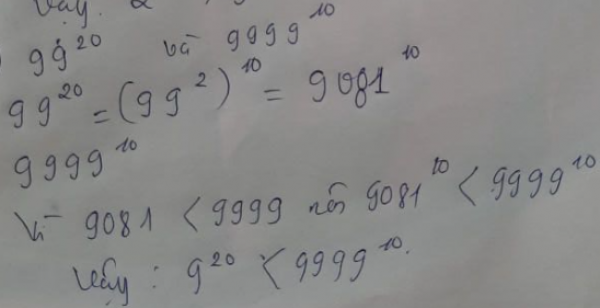 Vậy: 2
99²⁰ và 9999¹⁰
99²⁰ = (99²)¹⁰ = 9081¹⁰
9999¹⁰
Vì 9081 < 9999 nên 9081¹⁰ < 9999¹⁰
Vậy: 9²⁰ < 9999¹⁰.